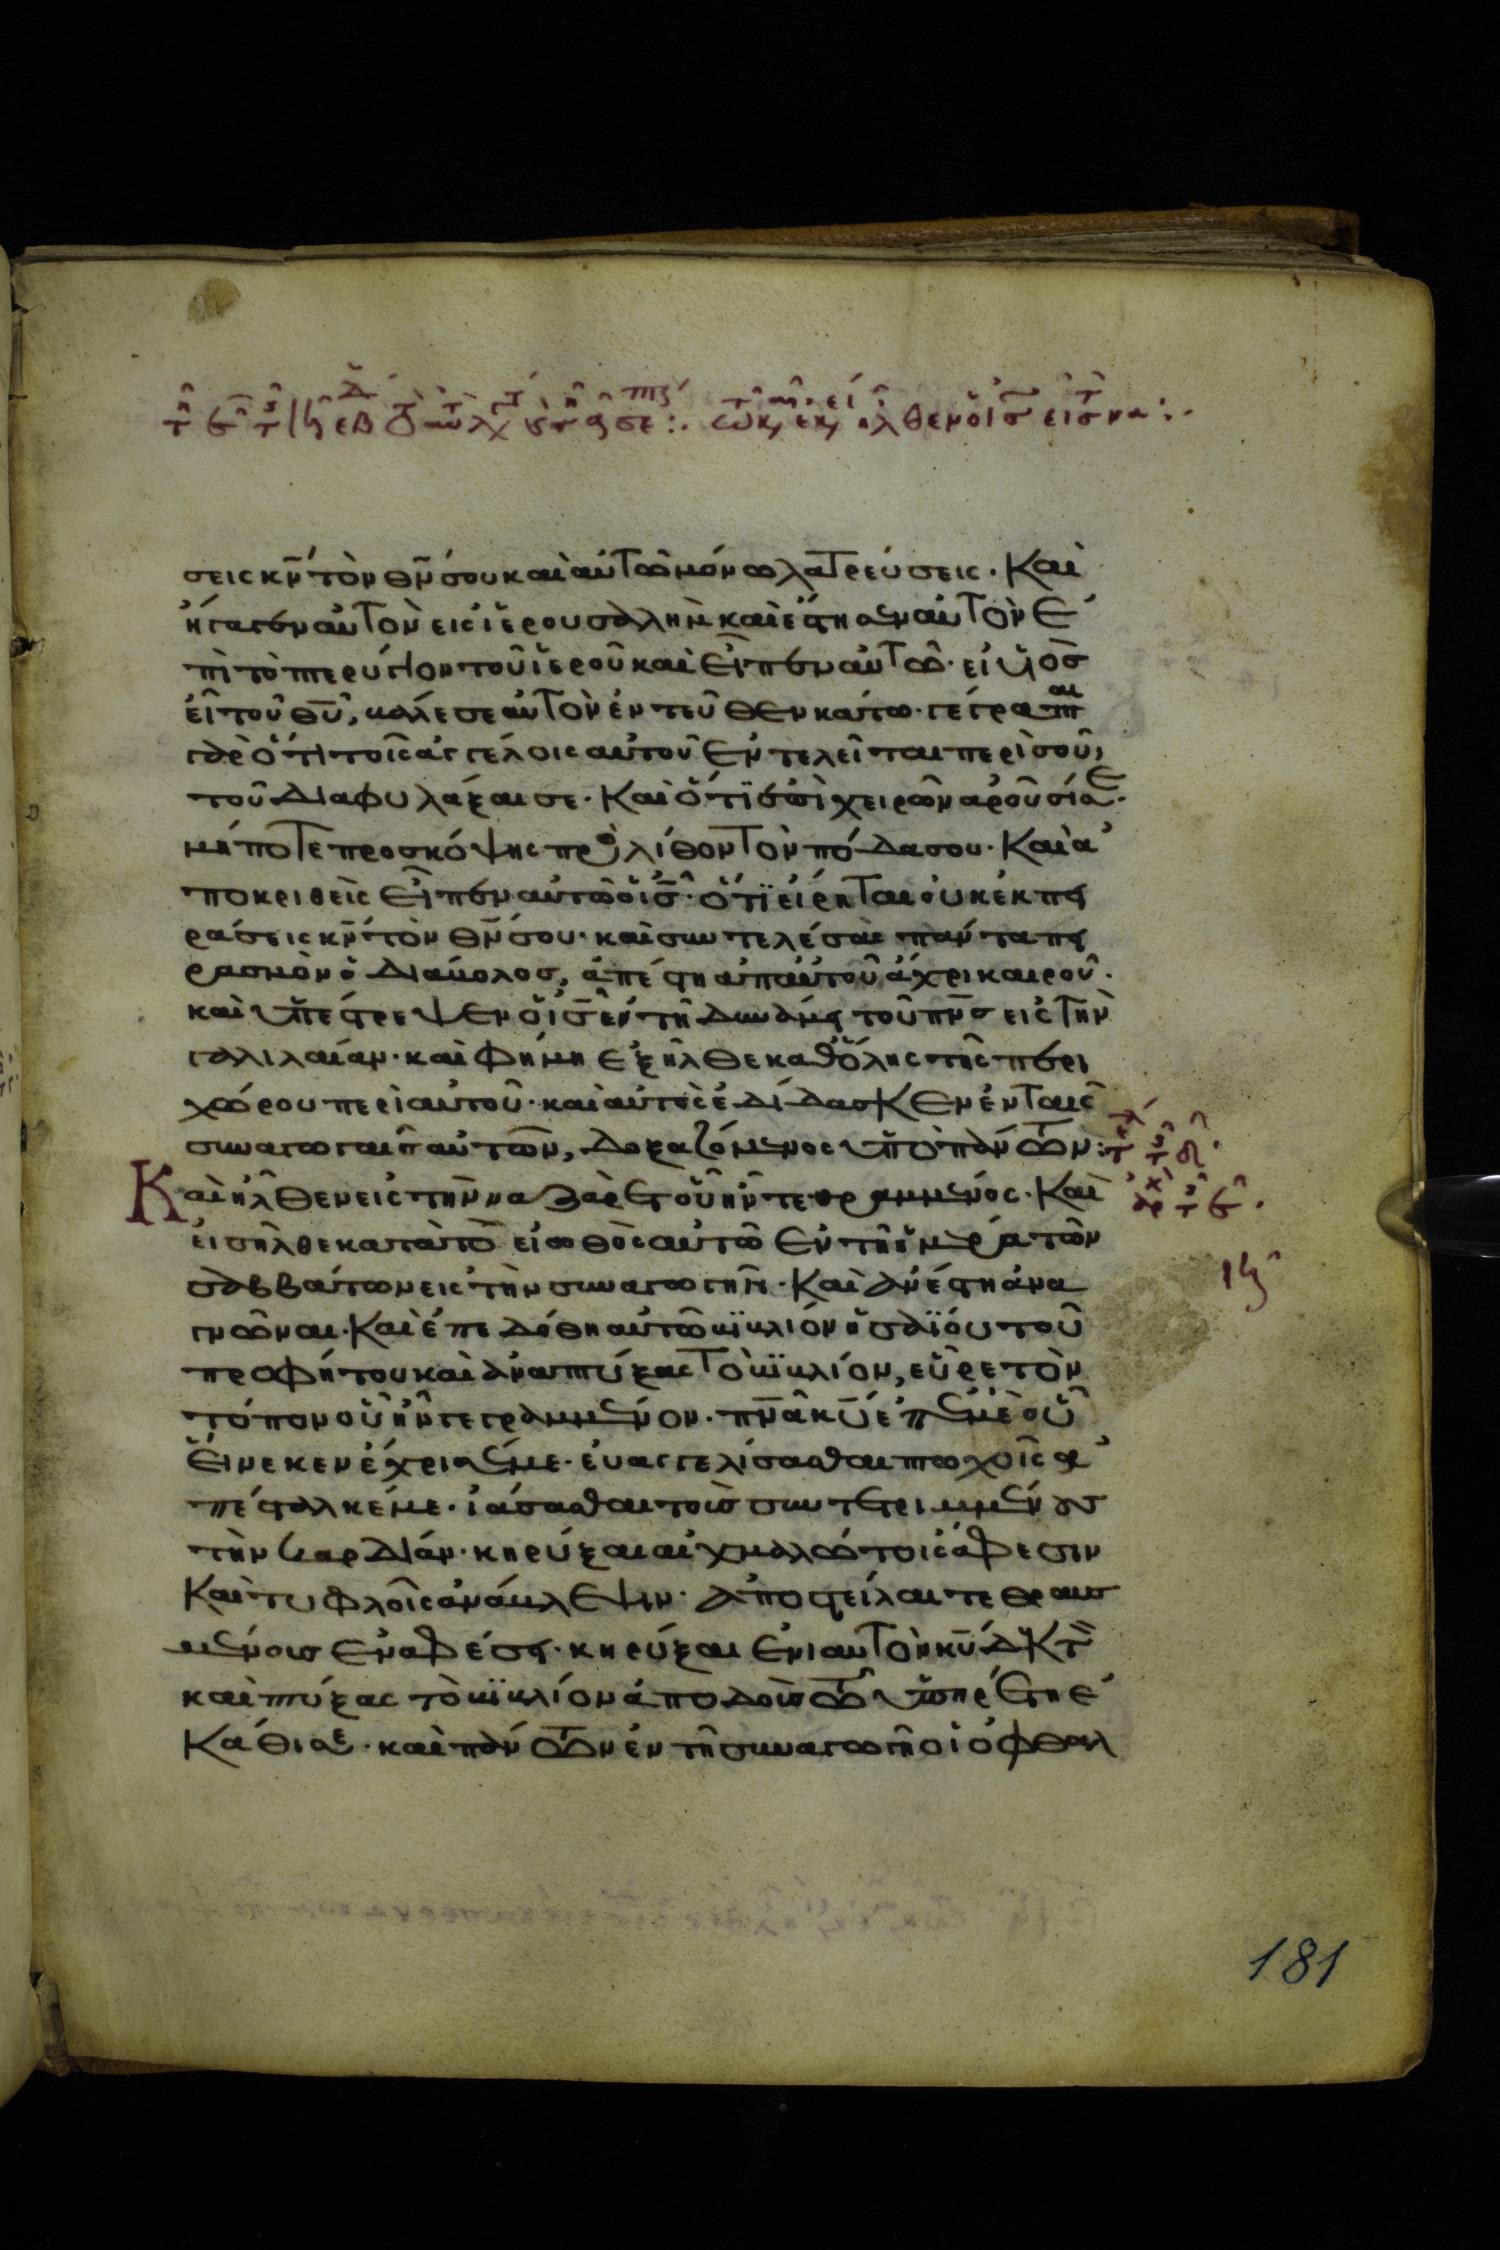 σεις κν̄ τὸν θν̄ σου καὶ αὐτῶ μόνω λατρεύσεις. Καὶ
ἤγαγεν αὐτὸν εἰς ἱερουσαλὴμ καὶ ἔστησεν αὐτὸν ἐ
πὶ τὸ πτερύγιον τοῦ ἱεροῦ καὶ εἶπεν αὐτῶ· εἰ υἱὸς
εἶ τοῦ θῡ, βάλε σεαυτὸν ἐντεῦθεν κάτω· γέγραπται
γὰρ ὅτι τοῖς ἀγγέλοις αὐτοῦ ἐντελεῖται περὶ σοῦ,
τοῦ διαφυλάξαι σε. Καὶ ὅτι ἐπὶ χειρῶν ἀροῦσί σε.
μήποτε προσκόψης πρὸς λίθον τὸν πόδα σου. Καὶ ἀ
ποκριθεὶς εἶπεν αὐτῶ ὁ ις̄· ὅτι εἴρηται οὐκ ἐκπει
ράσεις κν̄ τὸν θν̄ σου· καὶ συντελέσας πάντα πει
ρασμὸν ὁ διάβολος, ἀπέστη ἀπ' αὐτοῦ ἄχρι καιροῦ.
καὶ ὑπέστρεψεν ὁ ις̄ ἐν τῆ δυνάμει τοῦ πνς̄ εἰς τὴν
γαλιλαίαν· καὶ φήμη ἐξῆλθε καθ' ὅλης τῆς περι
χώρου περὶ αὐτοῦ· καὶ αὐτὸς ἐδίδασκεν ἐν ταῖς
συναγωγαῖς αὐτῶν, δοξαζόμενος ὑπὸ πάντων:
Καὶ ἦλθεν εἰς τὴν ναζαρὲτ οὗ ἦν τεθραμμένος. Καὶ
εἰσῆλθε κατὰ τὸ εἰωθὸς αὐτῶ ἐν τῆ ἡμέρα τῶν
σαββάτων εἰς τὴν συναγωγήν. Καὶ ἀνέστη ἀνα
γνῶναι. Καὶ ἐπεδόθη αὐτῶ βιβλίον ἠσαΐου τοῦ
προφήτου καὶ ἀναπτύξας τὸ βιβλίον, εὗρε τὸν
τόπον οὗ ἦν γεγραμμένον. πνᾱ κῡ ἐπ' ἐμὲ οὗ
εἵνεκεν ἔχρισέν με. εὐαγγελίσασθαι πτωχοῖς ἀ
πέσταλκέ με. ἰάσασθαι τοὺς συντετριμμένους
τὴν καρδίαν. κηρύξαι αἰχμαλώτοις ἄφεσιν
Καὶ τυφλοῖς ἀνάβλεψιν. ἀποστεῖλαι τεθραυσ
μένους ἐν ἀφέσει. κηρύξαι ἐνιαυτὸν κῡ δεκτὸν
καὶ πτύξας τὸ βιβλίον ἀποδοὺς τῶ ὑπηρέτη ἐ
Κάθισε. καὶ πάντων ἐν τῆ συναγωγῆ οἱ ὀφθαλ
ιϛ
181